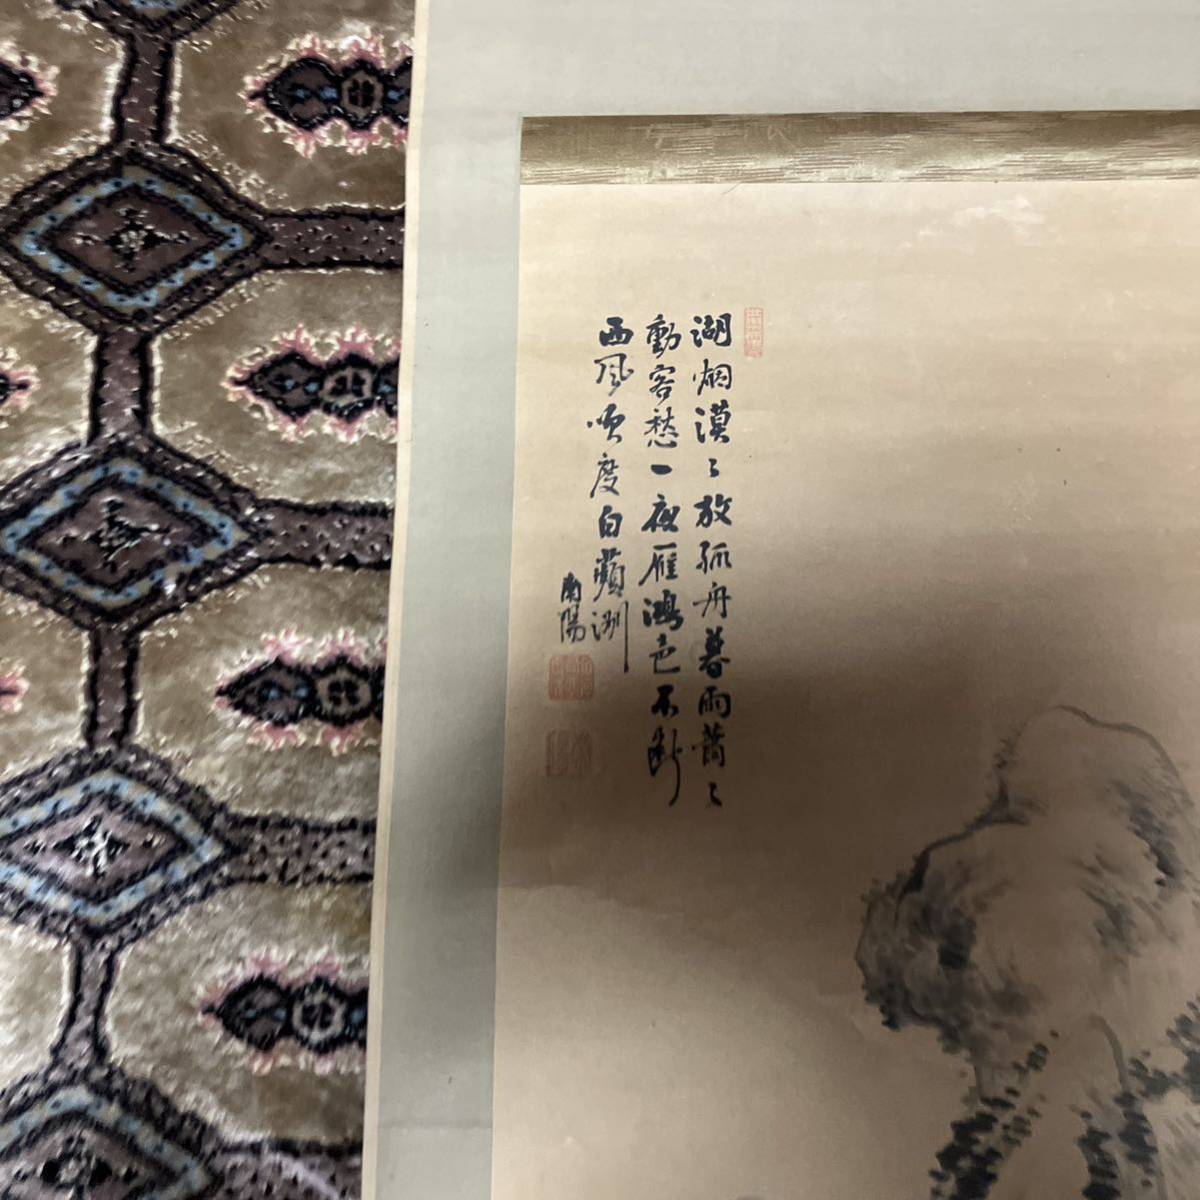 湖烟漠〻放孤舟暮雨蕭〻
動客愁一夜雁鴻声不断
西風吹度白蘋洲
南陽